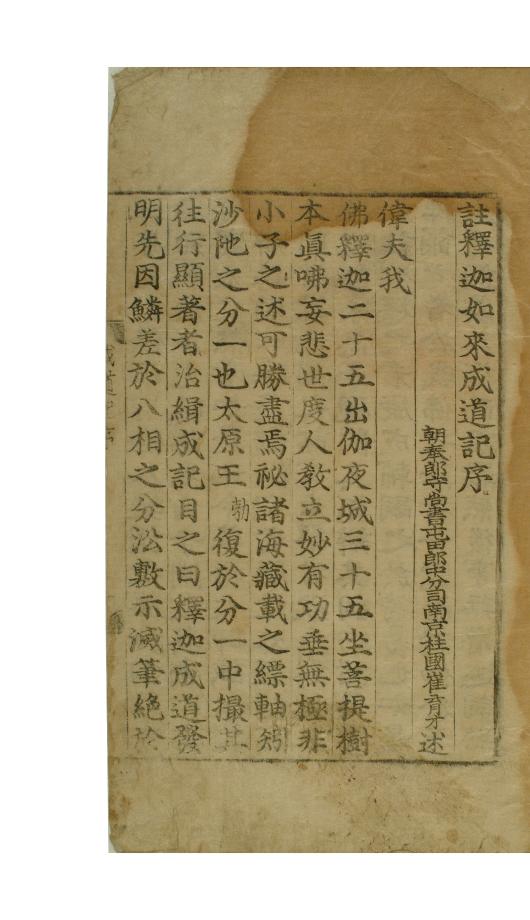 註釋迦如來成道記序
朝奉郎守尚書屯田郎中分司南京柱國崔育才述
偉夫我
佛釋迦二十五出伽夜城三十五坐菩提樹
本眞咈妄悲世度人敎立妙有功垂無極非
小子之述可勝盡焉祕諸海藏載之縹軸矧
沙陁之分一也太原王勃復於分一中撮其
徃行顯著者治緝成記目之曰釋迦成道發
明先因鱗差於八相之分泓敷示滅筆絶於